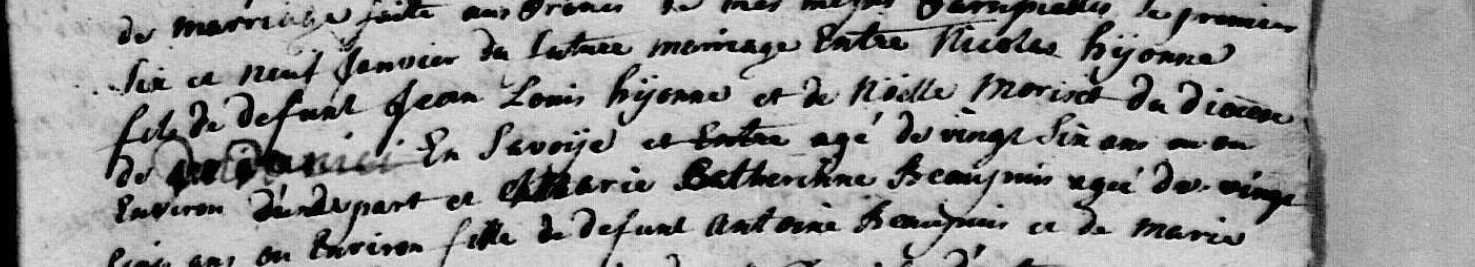 de marriage faite aux prones de mes messes parroissialles le premier
six et neuf Janvier du futur mariage Entre Nicolas hÿonne
fils de defunt Jean Louis hÿonne et de Nöelle Morisot du diocese
de En Savoÿe et Entre agé de vingt six ans ou en
Environ d'une part et Marie Catherinne Beaupuis agée de vingt
cinq ans ou Environ fille de defunt Antoine Beaupuis et de Marie